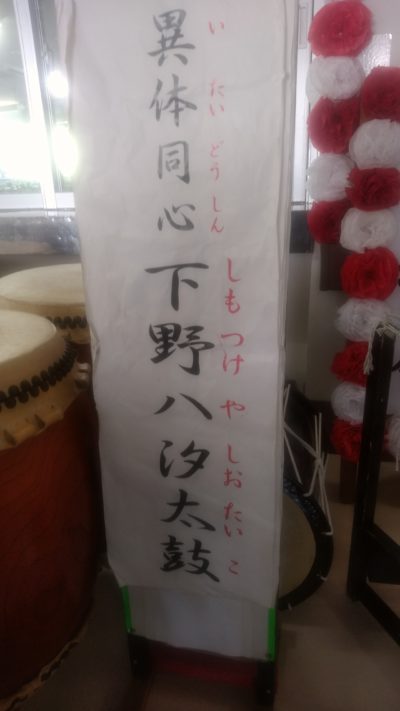 異体同心
いたいどうしん
下野八汐太鼓
しもつけやしおたいこ